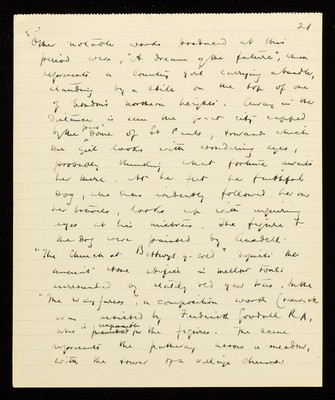 21
Other notable works produced at this
period were, "A dream of the future", which
represents a country girl carrying a bundle,
standing by a stile on the top of one
of London's northern heights. Away in the
distance is seen the great city capped
by the great Dome of St Pauls, towards which
the girl looks with wondering eyes,
probably thinking what fortune awaits
her there. At her feet her faithful
dog, who has evidently followed her on
her travels, looks up with inquiring
eyes at his mistress. The figure &
the dog were painted by Ansdell.
"The Church at Bettws-y-coed" depicts the
ancient stone edifice in mellow tones
surrounded by stately old yew trees. In the
"The Wayfarers", a composition work Creswick
was assisted by Frederick Goodall RA,
who is responsible for the figures. The scene
represents the pathway across a meadow,
with the tower of a village church